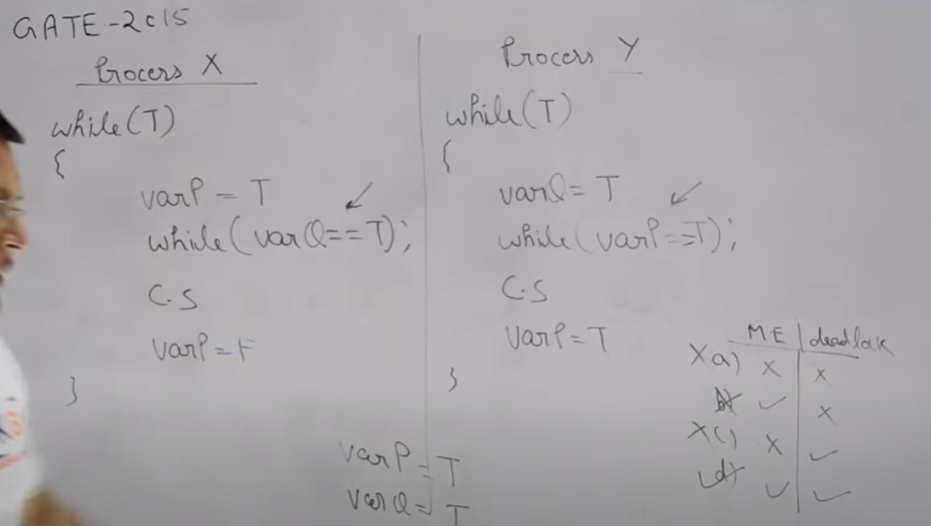 GATE-2015
Process X
while(T)
{
varP = T
while(varQ==T);
C.S
varP=F
}
Process Y
while(T)
{
varQ= T
while(varP==T);
C.S
varP=T
}
varP = T
varQ= T
ME | deadlock
Xa) X | X
b) ✓ | X
Xc) X | ✓
d) ✓ | ✓